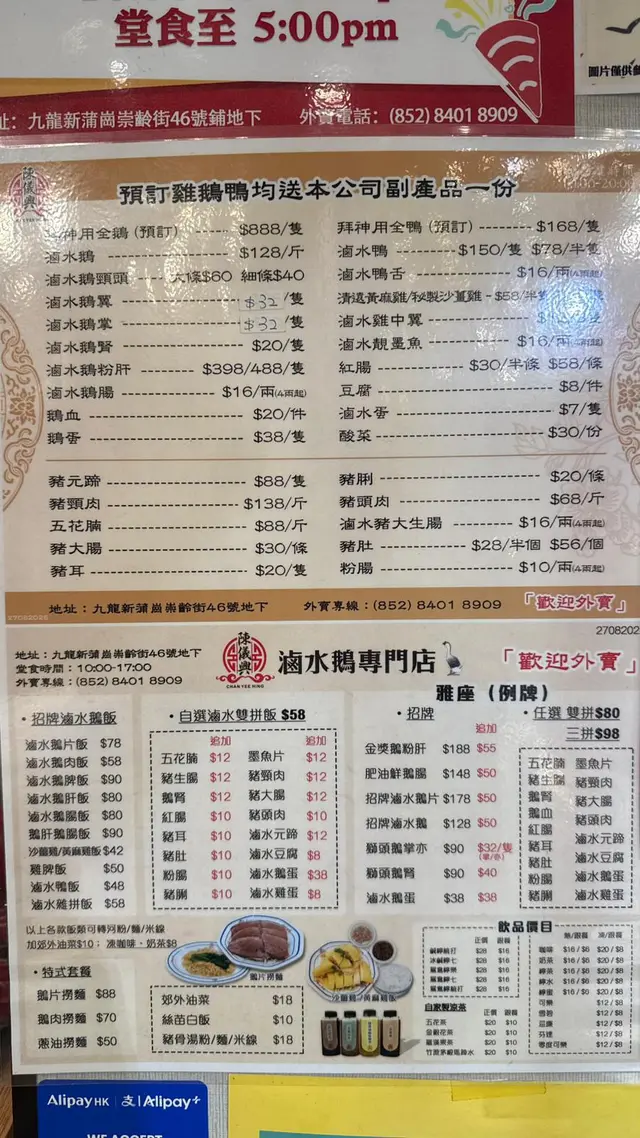 堂食至 5:00pm
址：九龍新蒲崗崇齡街46號鋪地下 外賣電話：(852) 8401 8909
圖片僅供
陳儀興
預訂雞鵝鴨均送本公司副產品一份
神用全鵝（預訂） $888/隻
滷水鵝 $128/斤
滷水鵝頸頭 大條$60 細條$40
滷水鵝翼 $32/隻
滷水鵝掌 $32/隻
滷水鵝腎 $20/隻
滷水鵝粉肝 $398/488/隻
滷水鵝腸 $16/兩(4兩起)
鵝血 $20/件
鵝蛋 $38/隻
拜神用全鴨（預訂） $168/隻
滷水鴨 $150/隻 $78/半隻
滷水鴨舌 $16/兩(4兩起)
清遠黃麻雞/秘製沙薑雞 - $58/半隻
滷水雞中翼
滷水靚墨魚 $16/兩
紅腸 $30/半條 $58/條
豆腐 $8/件
滷水蛋 $7/隻
酸菜 $30/份
豬元蹄 $88/隻
豬頸肉 $138/斤
五花腩 $88/斤
豬大腸 $30/條
豬耳 $20/隻
豬脷 $20/條
豬頭肉 $68/斤
滷水豬大生腸 $16/兩(4兩起)
豬肚 $28/半個 $56/個
粉腸 $10/兩(4兩起)
地址：九龍新蒲崗崇齡街46號地下 外賣專線：(852) 8401 8909 「歡迎外賣」
27082025
2708202
地址：九龍新蒲崗崇齡街46號地下
堂食時間：10:00-17:00
外賣專線：(852) 8401 8909
陳儀興
CHAN YEE HING
滷水鵝專門店
「歡迎外賣」
・招牌滷水鵝飯
滷水鵝片飯 $78
滷水鵝肉飯 $58
滷水鵝髀飯 $90
滷水鵝肝飯 $80
滷水鵝腸飯 $80
鵝肝鵝腸飯 $90
沙薑雞/黃麻雞飯 $42
雞髀飯 $50
滷水鴨飯 $48
滷水雜拼飯 $58
・自選滷水雙拼飯 $58
追加 追加
五花腩 $12 墨魚片 $12
豬生腸 $12 豬頸肉 $12
鵝腎 $12 豬大腸 $12
紅腸 $10 豬頭肉 $10
豬耳 $10 滷水元蹄 $12
豬肚 $10 滷水豆腐 $8
粉腸 $10 滷水鵝蛋 $38
豬脷 $10 滷水雞蛋 $8
雅座（例牌）
・招牌
追加
金獎鵝粉肝 $188 $55
肥油鮮鵝腸 $148 $50
招牌滷水鵝片 $178 $50
招牌滷水鵝 $128 $50
獅頭鵝掌亦 $90 $32/隻
(掌/亦)
獅頭鵝腎 $90 $40
滷水鵝蛋 $38 $38
・任選 雙拼$80
三拼$98
五花腩 墨魚片
豬生腸 豬頸肉
鵝腎 豬大腸
鵝血 豬頭肉
紅腸 滷水元蹄
豬耳 滷水豆腐
豬肚 滷水鵝蛋
粉腸 滷水雞蛋
豬脷
以上各款飯類可轉河粉/麵/米線
加郊外油菜$10；凍咖啡、奶茶$8
・特式套餐
鵝片撈麵 $88
鵝肉撈麵 $70
蔥油撈麵 $50
鵝片撈麵
沙薑雞/黃麻雞飯
郊外油菜 $18
絲苗白飯 $10
豬骨湯粉/麵/米線 $18
飲品價目
正價 跟餐
鹹檸梳打 $28 $16
冰鹹檸七 $28 $16
$28 $16
$28 $16
$28 $16
自家製涼茶
正價 跟餐
五花茶 $20 $10
$20 $10
$20 $10
竹蔗茅根馬蹄水 $20 $10
熱/跟餐 凍/跟餐
咖啡 $16 / $6 $20 / $8
奶茶 $16 / $6 $20 / $8
檸茶 $16 / $6 $20 / $8
檸水 $16 / $6 $20 / $8
檸蜜 $16 / $6 $20 / $8
可樂 $12 / $8
雪碧 $12 / $8
$12 / $8
芬達 $12 / $8
零度可樂 $12 / $8
AlipayHK 支 | Alipay+
WE ACCEPT